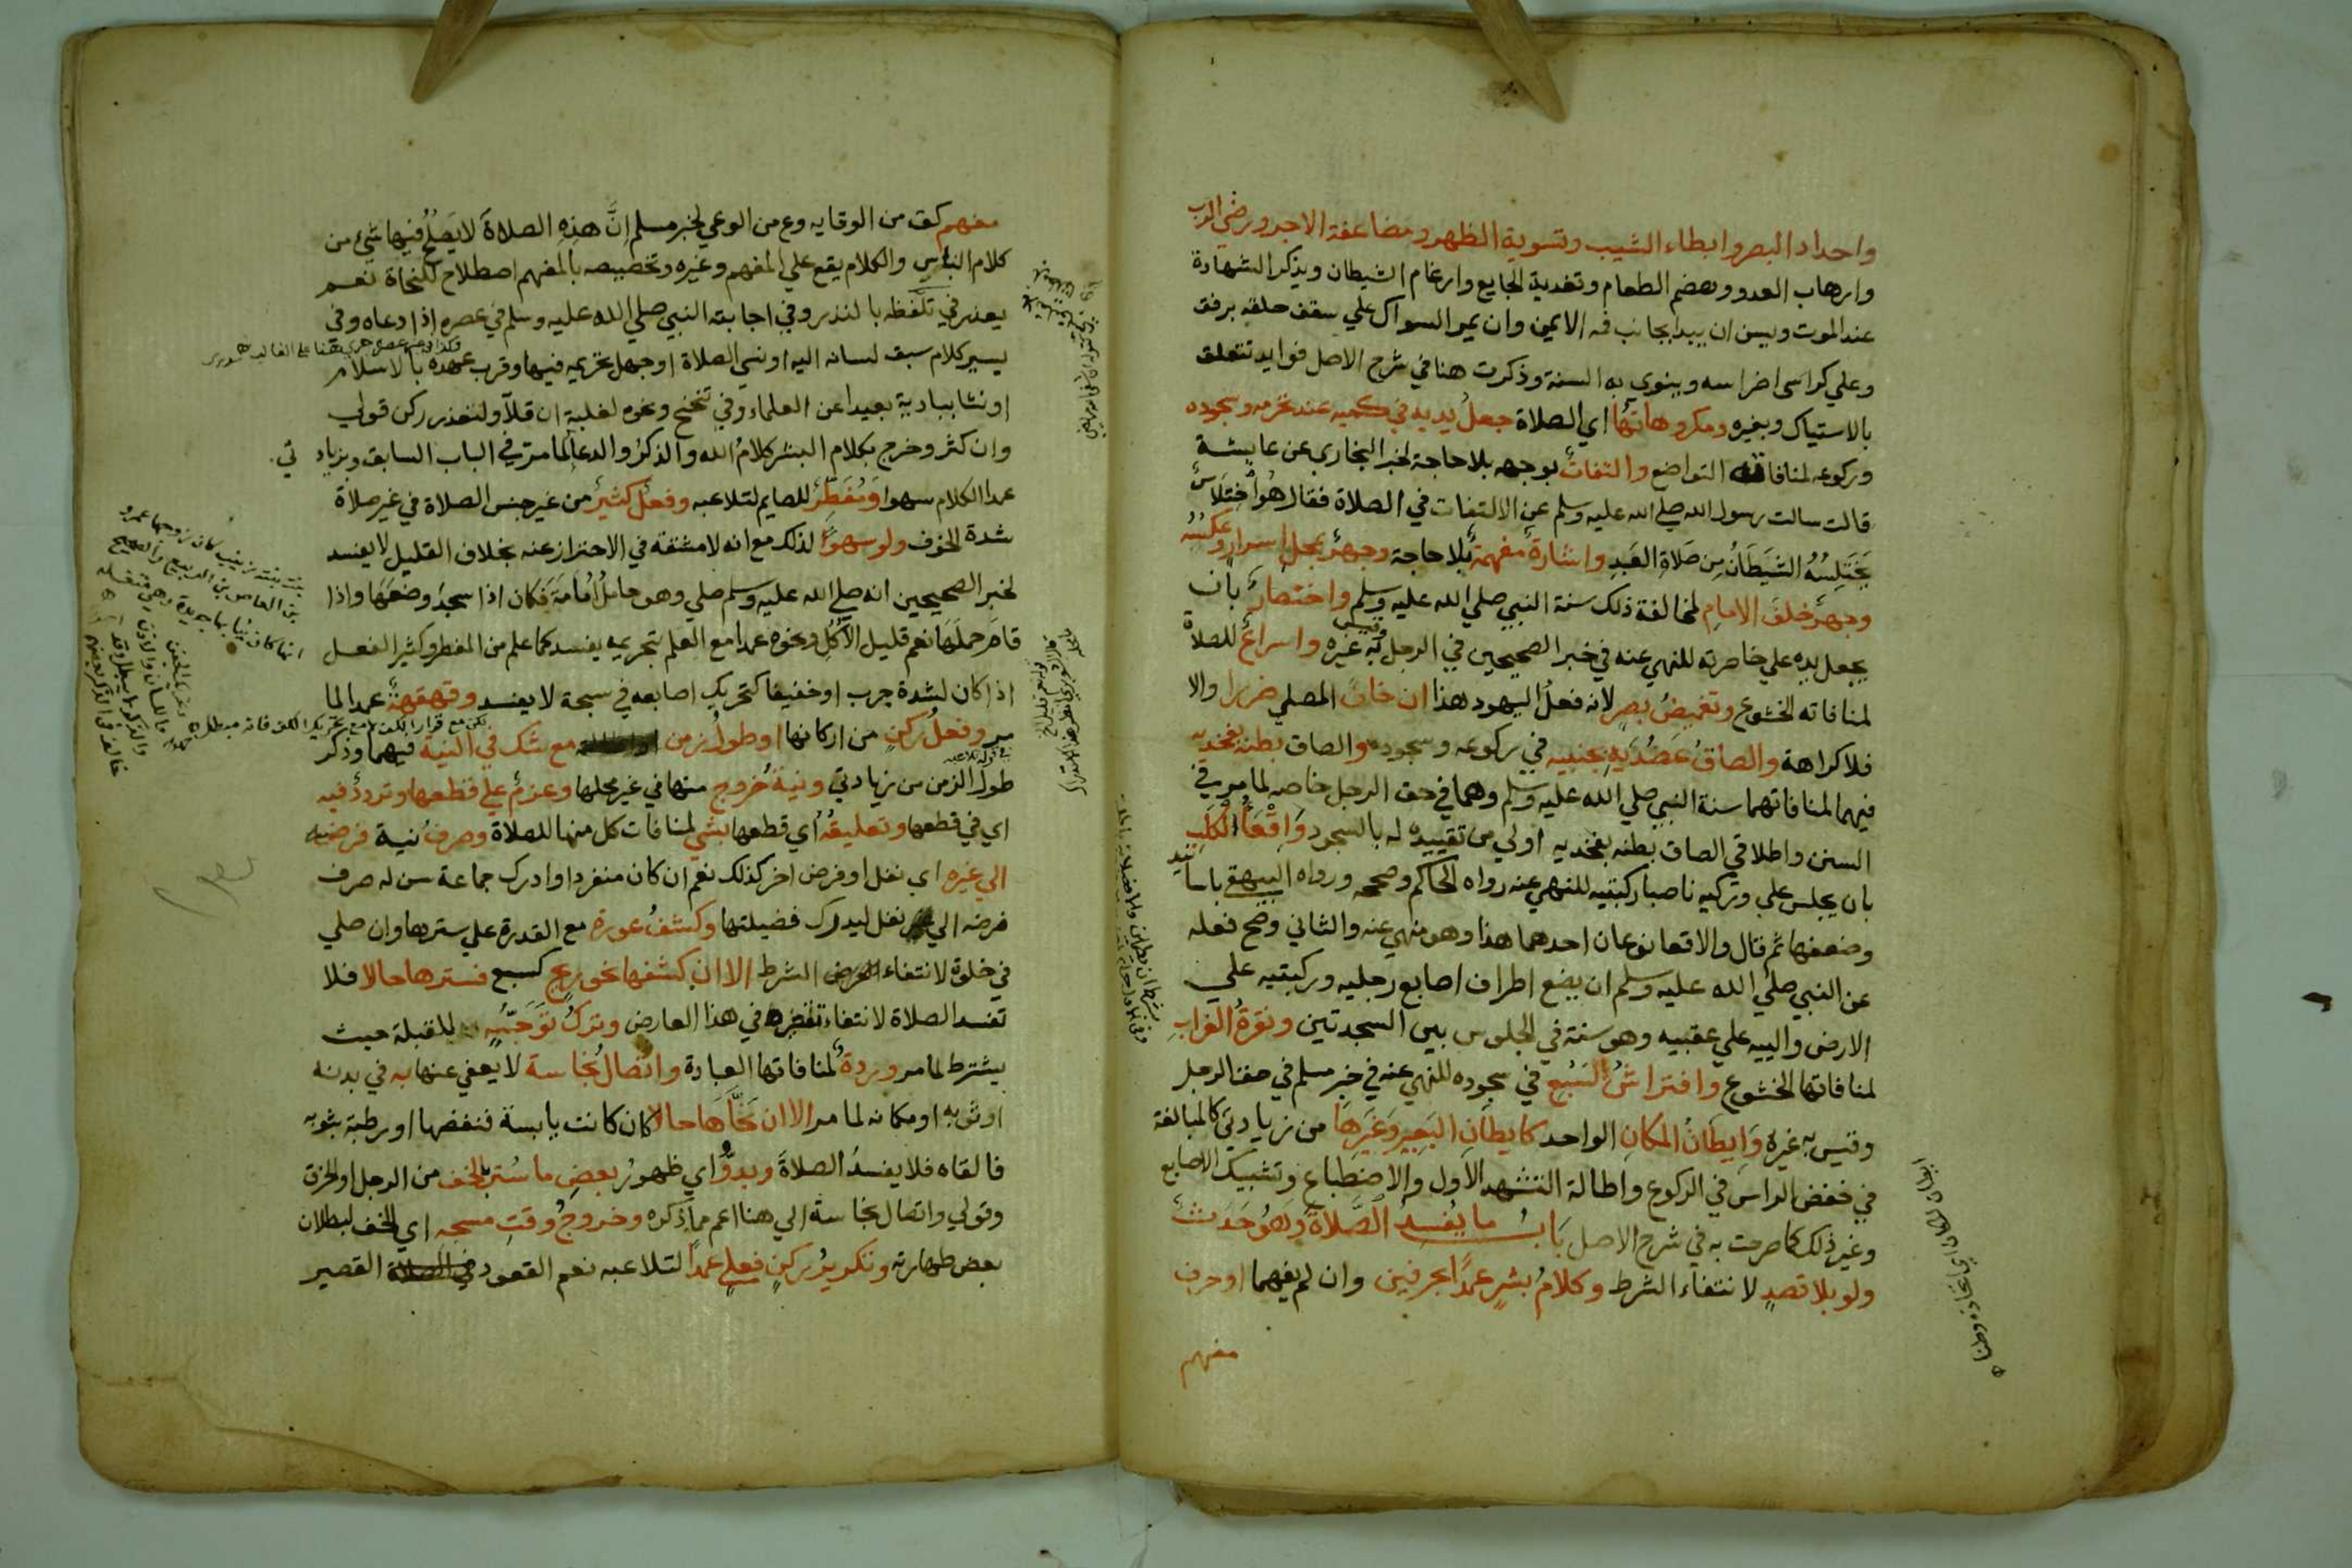 واحداد البصر وابطاء الشيب وتسوية الظهر ومضاعفة الاجر ورضي الرب
وارهاب العدو وهضم الطعام وتغدية الجايع وارغام الشيطان ويذكر الشهادة
عند الموت ويسن ان يبدا بجانب فمه الايمن وان يمر السواك علي سقف حلقه برفق
وعلي كراسي اضراسه وينوي به السنة وذكرت هنا في شرح الاصل فوايد تتعلق
بالاستياك وبغيره ومكروهاتها اي الصلاة جعل يديه في كميه عند تحرمه وسجوده
وركوعه لمنافاته التواضع والتفات بوجهه بلا حاجة لخبر البخاري عن عايشة
قالت سالت رسول الله صلي الله عليه وسلم عن الالتفات في الصلاة فقال هو اختلاس
يختلسه الشيطان من صلاة العبد واشارة مفهمة بلا حاجة وجهر بمحل اسرار وعكسه
وجهر خلف الامام لمخالفة ذلك سنة النبي صلي الله عليه وسلم واختصار بان
يجعل يده علي خاصرته للنهي عنه في خبر الصحيحين في الرجل وقيس به غيره واسراع للصلاة
لمنافاته الخشوع وتغميض بصر لانه فعل اليهود هذا ان خاف المصلي ضررا والا
فلا كراهة والصاق عضديه بجنبيه في ركوعه وسجوده والصاق بطنه بفخذيه
فيهما لمنافاتهما سنة النبي صلي الله عليه وسلم وهما في حق الرجل خاصه لما مر في
السنن واطلاقي الصاق بطنه بفخديه اولي من تقييده له بالسجود واقعاء الكلب
بان يجلس علي وركيه ناصبا ركبتيه للنهي عنه رواه الحاكم وصححه ورواه البيهقي باسانيد
وضعفها ثم قال والاقعا نوعان احدهما هذا وهو منهي عنه والثاني وصح فعله
عن النبي صلي الله عليه وسلم ان يضع اطراف اصابع رجليه وركبتيه علي
الارض والييه علي عقبيه وهو سنة في الجلوس بين السجدتين ونقرة الغراب
لمنافاتها الخشوع وافتراش السبع في سجوده للنهي عنه في خبر مسلم في حق الرجل
وقيس به غيره وايطان المكان الواحد كايطان البعير وغيرها من زيادتي كالمبالغة
في خفض الراس في الركوع واطالة التشهد الاول والاضطباع وتشبيك الاصابع
وغير ذلك كما صرحت به في شرح الاصل باب ما يفسد الصلاة وهو حدث
ولو بلا قصد لانتفاء الشرط وكلام بشر عمدا بحرفين وان لم يفهما او حرف
مفهم
مفهم كق من الوقايه وع من الوعي لخبر مسلم ان هذه الصلاة لا يصلح فيها شيء من
كلام الناس والكلام يقع علي المفهم وغيره وتخصيصه بالمفهم اصطلاح للنحاة نعم
يعذر في تلفظه بالنذر وفي اجابته النبي صلي الله عليه وسلم في عصره اذا دعاه وفي
يسير كلام سبق لسانه اليه او نسي الصلاة او جهل تحريمه فيها وقرب عهده بالاسلام
او نشا ببادية بعيدا عن العلماء وفي تنحنح ونحوه لغلبة ان قلا ولتعذر ركن قولي
وان كثر وخرج بكلام البشر كلام الله والذكر والدعا لما مر في الباب السابق وبزيادتي
عمدا الكلام سهوا ومفطر للصايم لتلاعبه وفعل كثير من غير جنس الصلاة في غير صلاة
شدة الخوف ولو سهوا لذلك مع انه لا مشقة في الاحتراز عنه بخلاف القليل لا يفسد
لخبر الصحيحين انه صلي الله عليه وسلم صلي وهو حامل امامة فكان اذا سجد وضعها واذا
قام حملها نعم قليل الاكل ونحوه عمدا مع العلم بتحريمه يفسد كما علم من المفطر وكثير الفعل
اذا كان لشدة جرب او خفيفا كتحريك اصابعه في سبحة لا يفسد وقهقهة عمدا لما
مر وفعل ركن من اركانها او طول زمن مع شك في النية فيهما وذكر
طول الزمن من زيادتي ونية خروج منها في غير محلها وعزم علي قطعها وتردد فيه
اي في قطعها وتعليقه اي قطعها بشي لمنافات كل منها للصلاة وصرف نية فرضه
الي غيره اي نفل او فرض اخر كذلك نعم ان كان منفردا وادرك جماعة سن له صرف
فرضه الي نفل ليدرك فضيلتها وكشف عورة مع القدرة علي سترها وان صلي
في خلوة لانتفاء الشرط الا ان كشفها نحو ريح كسبع فسترها حالا فلا
تفسد الصلاة لانتفاء تقصيره في هذا العارض وترك توجهه للقبلة حيث
يشترط لما مر وردة لمنافاتها العبادة واتصال نجاسة لا يعفي عنها به في بدنه
او ثوبه او مكانه لما مر الا ان نحاها حالا كان كانت يابسة فنفضها او رطبة بثوبه
فالقاه فلا يفسد الصلاة وبدو اي ظهور بعض ما ستر بالخف من الرجل او الخرق
وقولي واتصال نجاسة الي هنا اعم مما ذكره وخروج وقت مسحه اي الخف لبطلان
بعض طهارته وتكرير ركن فعلي عمدا لتلاعبه نعم القعود القصير